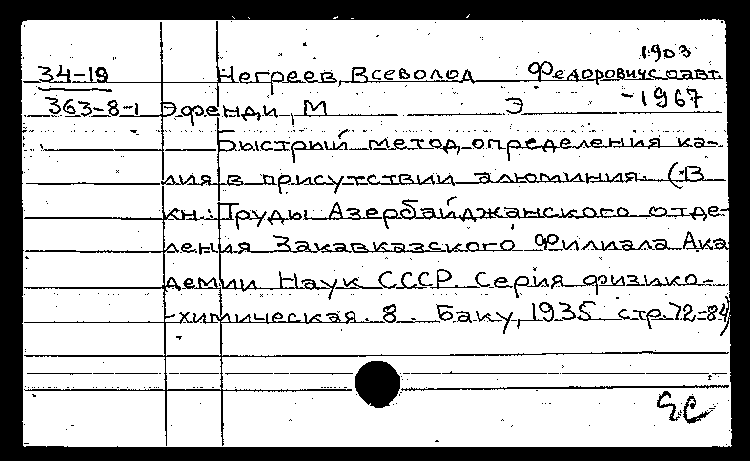 1903
34-19 Негреев, Всеволод Федорович соавт.
363-8-1 Эфенди, М Э -1967
Быстрый метод определения ка-
лия в присутствии алюминия. (В
кн.: Труды Азербайджанского отде-
ления Закавказского Филиала Ака
демии Наук СССР. Серия физико-
-химическая. 8. Баку, 1935 стр. 72-84)